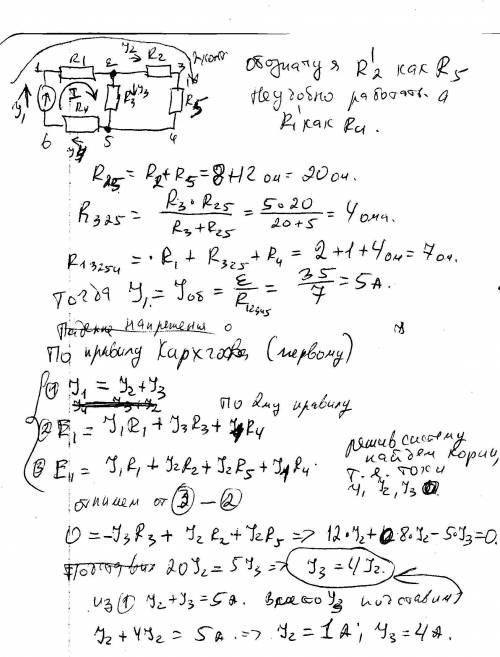 R1 2 R2 3
1
I
R4 R3 R5
6 5 4
обозначу я R'2 как R5
Неудобно работать а
R'1 как R4.
R25 = R2 + R5 = 8 + 12 ом = 20 ом.
R325 = R3 · R25 / R3 + R25 = 5 · 20 / 20 + 5 = 4 ома.
R13254 = R1 + R325 + R4 = 2 + 1 + 4 ом = 7 ом.
Тогда J1 = Jоб = ε / R12345 = 35 / 7 = 5 А.
Падение напряжения
По правилу Кирхгофа (первому)
① J1 = J2 + J3
По 2му правилу
② E1 = J1R1 + J3R3 + J1R4
③ E11 = J1R1 + J2R2 + J2R5 + J1R4
решив систему
найдем корни,
т.е. токи
J1, J2, J3
отнимем от ③ – ②
0 = -J3R3 + J2R2 + J2R5 => 12·J2 + 8·J2 - 5J3 = 0.
20J2 = 5J3 => J3 = 4J2.
из ① J2 + J3 = 5 А. вместо J3 подставим
J2 + 4J2 = 5 А => J2 = 1 А; J3 = 4 А.